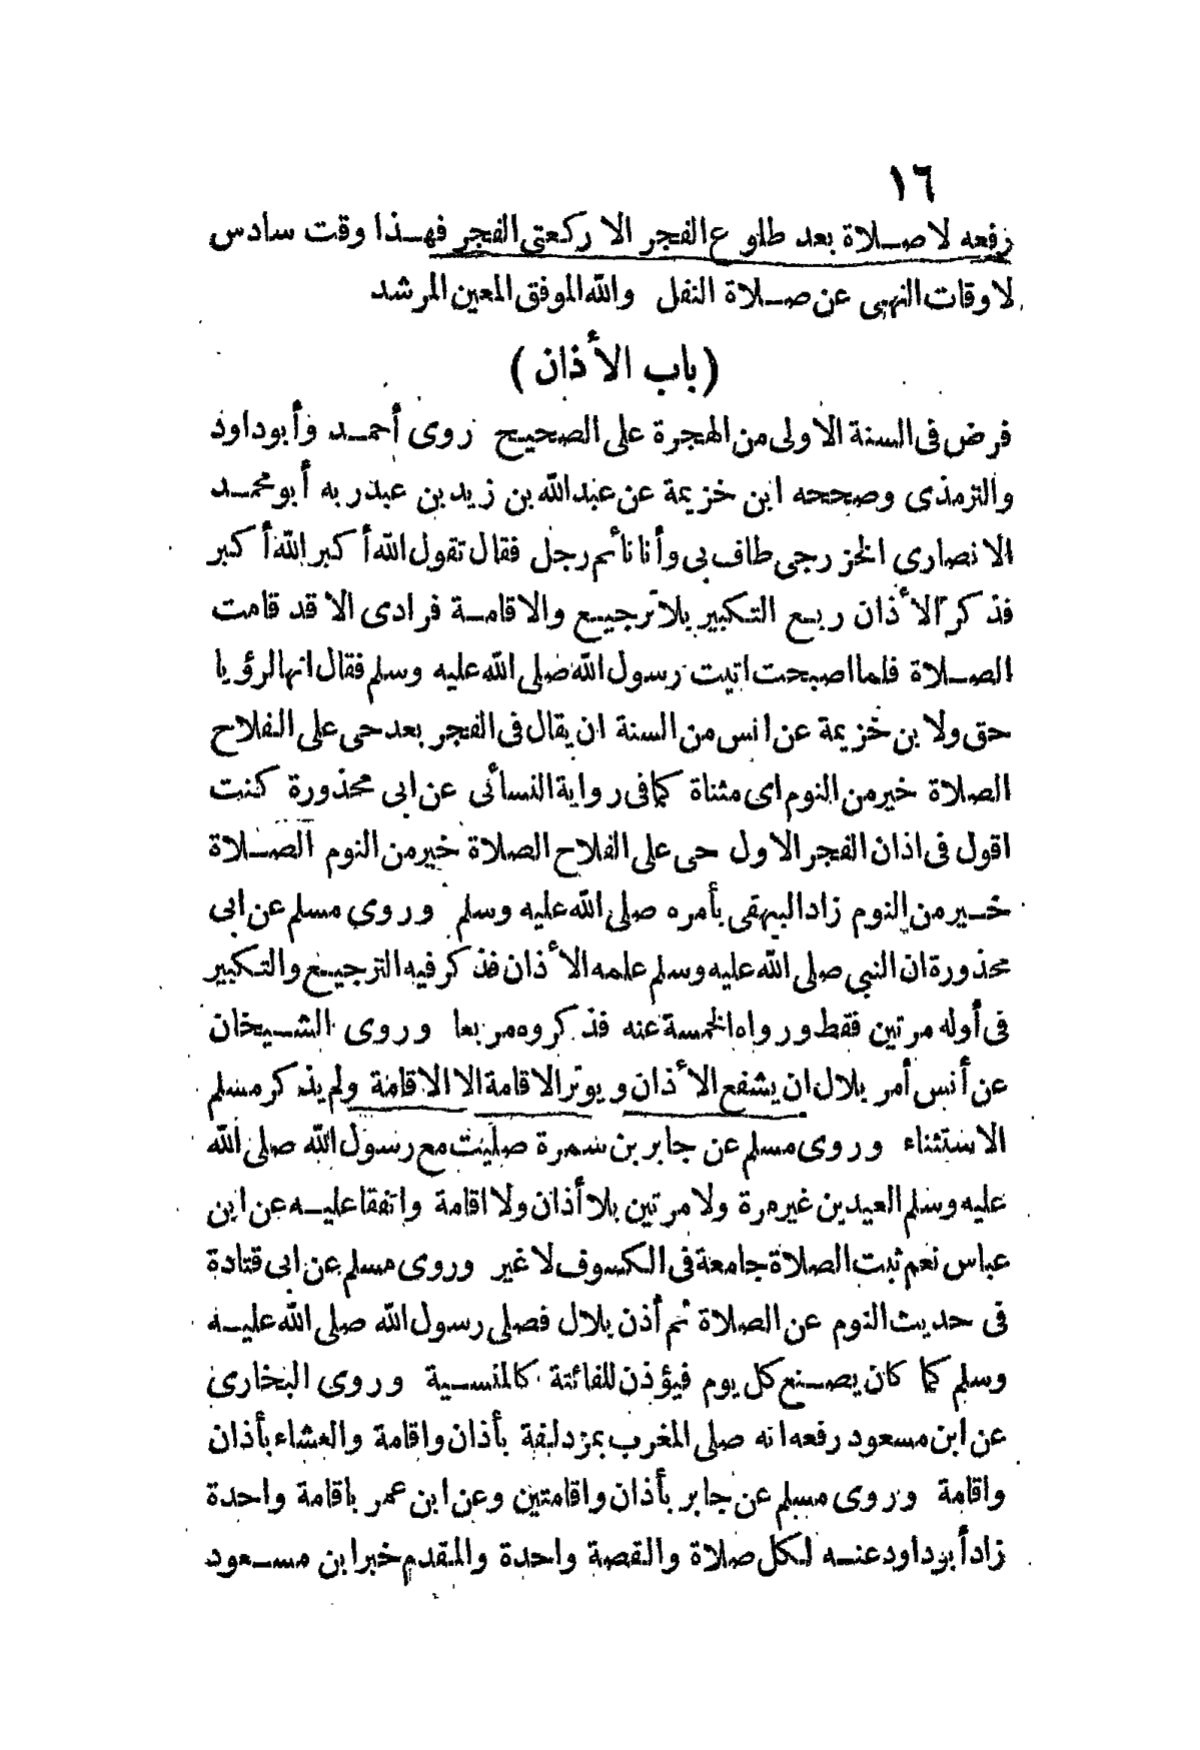 ١٦
رفعه لا صلاة بعد طلوع الفجر الا ركعتى الفجر فهذا وقت سادس
لاوقات النهى عن صلاة النفل والله الموفق المعين المرشد
(باب الأذان)
فرض فى السنة الاولى من الهجرة على الصحيح روى أحمد وأبوداود
والترمذى وصححه ابن خزيمة عن عبد الله بن زيد بن عبدربه أبو محمد
الانصارى الخزرجى طاف بى وأنا نائم رجل فقال تقول الله أكبر الله أكبر
فذكر الأذان ربع التكبير بلا ترجيع والاقامة فرادى الا قد قامت
الصلاة فلما اصبحت اتيت رسول الله صلى الله عليه وسلم فقال انها لرؤيا
حق ولابن خزيمة عن انس من السنة ان يقال فى الفجر بعد حى على الفلاح
الصلاة خير من النوم اى مثناة كما فى رواية النسائى عن ابى محذورة كنت
اقول فى اذان الفجر الاول حى على الفلاح الصلاة خير من النوم الصلاة
خير من النوم زاد البيهقى بأمره صلى الله عليه وسلم وروى مسلم عن ابى
محذورة ان النبي صلى الله عليه وسلم علمه الأذان فذكر فيه الترجيع والتكبير
فى أوله مرتين فقط ورواه الخمسة عنه فذكروه مربعا وروى الشيخان
عن أنس أمر بلال ان يشفع الأذان ويوتر الاقامة الا الاقامة ولم يذكر مسلم
الاستثناء وروى مسلم عن جابر بن سمرة صليت مع رسول الله صلى الله
عليه وسلم العيدين غير مرة ولا مرتين بلا أذان ولا اقامة واتفقا عليه عن ابن
عباس نعم ثبت الصلاة جامعة فى الكسوف لا غير وروى مسلم عن ابى قتادة
فى حديث النوم عن الصلاة ثم أذن بلال فصلى رسول الله صلى الله عليه
وسلم كما كان يصنع كل يوم فيؤذن للفائتة كالمنسية وروى البخارى
عن ابن مسعود رفعه انه صلى المغرب بمزدلفة بأذان واقامة والعشاء بأذان
واقامة وروى مسلم عن جابر بأذان واقامتين وعن ابن عمر باقامة واحدة
زاد أبوداود عنه لكل صلاة والقصة واحدة والمقدم خبر ابن مسعود